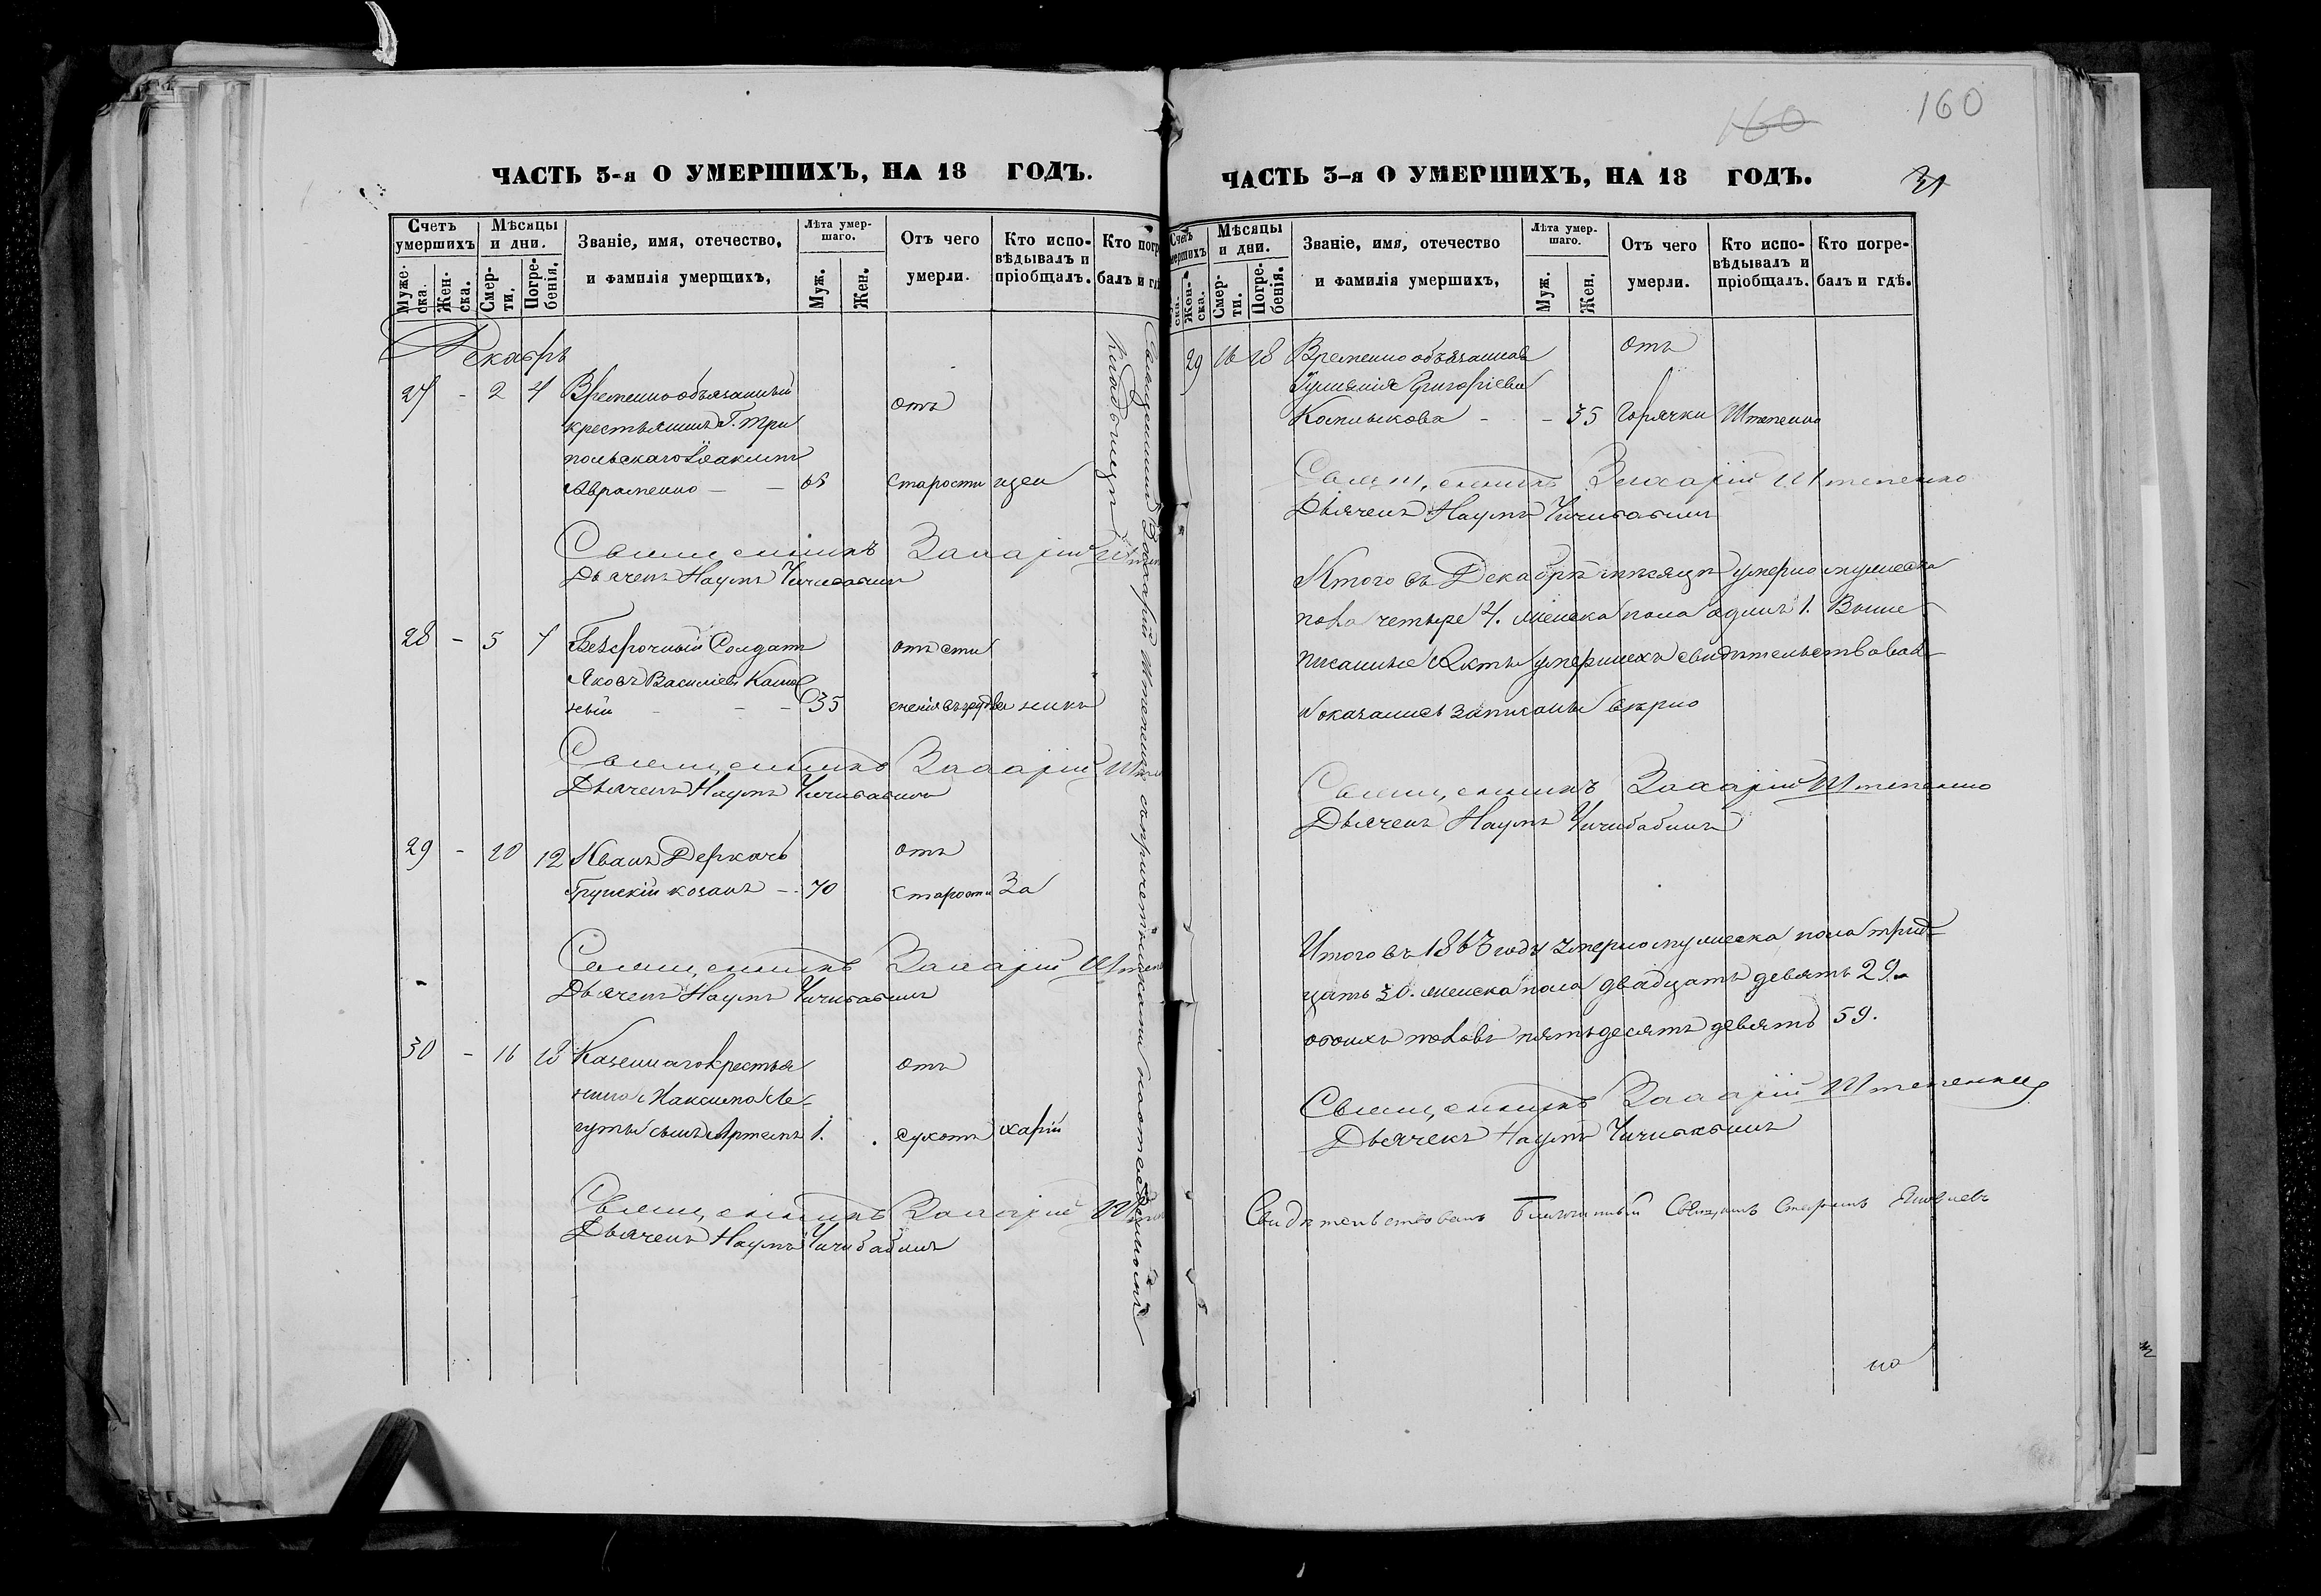 160
160
31
ЧАСТЬ 3-я О УМЕРШИХЪ, НА 18 ГОДЪ.
Счетъ умершихъ
Мѣсяцы и дни.
Званіе, имя, отечество, и фамилія умершихъ,
Лѣта умершаго.
Отъ чего умерли.
Кто исповѣдывалъ и пріобщалъ.
Кто погребалъ и гдѣ
Мужеска.
Женска.
Смерти.
Погребенія.
Муж.
Жен.
Декабрь
27 - 2 4 Временнообязанный
крестьянинъ Г. Три отъ
польскаго
Авраменко — — 68 старости щен
Священникъ Захарій Штепен
Дьячекъ Наумъ Чичибабинъ
28 - 5 7 Безсрочный Солдатъ отъ сти
Яковъ Василіевъ
ный - - - 35 сненія въ груди никъ
Священникъ Захарій Штеп
Дьячекъ Наумъ Чичибабинъ
29 - 10 12 Иванъ Деркачъ отъ
Грунскій козакъ - - 70 старости За
Священникъ Захарій Штепе
Дьячекъ Наумъ Чичибабинъ
30 - 16 18 Казеннаго крестья отъ
нина Максима Ле-
гуты сынъ Артемъ 1. сухотъ харій
Священникъ Захарій Штеп
Дьячекъ Наумъ Чичибабинъ
Священникъ Захарій Штепенко съ причетниками на отведенномъ
кладбищѣ
ЧАСТЬ 3-я О УМЕРШИХЪ, НА 18 ГОДЪ.
Счетъ умершихъ
Мѣсяцы и дни.
Званіе, имя, отечество и фамилія умершихъ,
Лѣта умершаго.
Отъ чего умерли.
Кто исповѣдывалъ и пріобщалъ.
Кто погребалъ и гдѣ.
Женска.
Смерти.
Погребенія.
Муж.
Жен.
29 16 18 Временнообязанная отъ
Іуліянія Григоріева
- - 35 горячки Штепенко
Священникъ Захарій Штепенко
Дьячекъ Наумъ Чичибабинъ
Итого въ Декабрѣ мѣсяцѣ умерло мужеска
пола четыре 4. женска пола одинъ 1. Выше
писанные Акты умершихъ свидѣтельствовал
и оказались записаны вѣрно
Священникъ Захарій Штепенко
Дьячекъ Наумъ Чичибабинъ
Итого въ 1863 году умерло мужеска пола трид-
цать 30. женска пола двадцать девять 29.
обоихъ половъ пятьдесятъ девять 59.
Священникъ Захарій Штепенко
Дьячекъ Наумъ Чичибабинъ
Свидѣтельствовалъ Благочинный